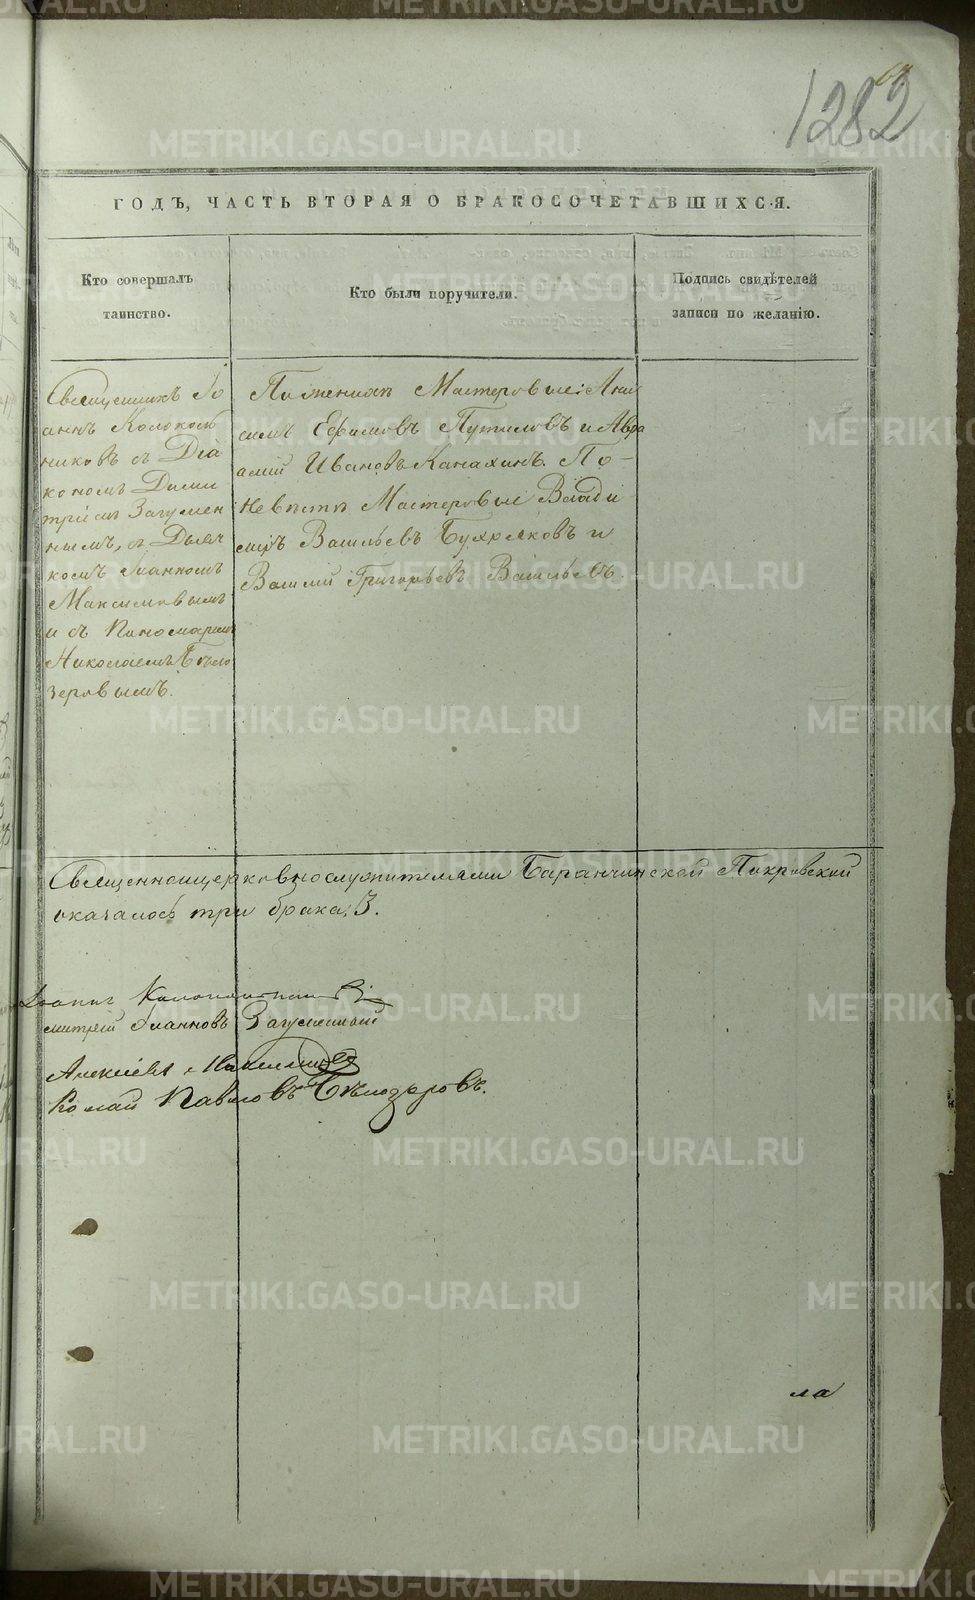 1282
ГОДЪ, ЧАСТЬ ВТОРАЯ О БРАКОСОЧЕТАВШИХСЯ.
Кто совершалъ
таинство.
Кто были поручители.
Подпись свидѣтелей
записи по желанію.
Священникъ Іо
аннъ Колоколь
никовъ съ Діа
кономъ Дими
тріемъ Загумен
нымъ, съ Дьяч
комъ Іоанномъ
Максимовымъ
и съ Пономаремъ
Николаемъ Бѣло
зеровымъ.
По женихѣ Мастеровые: Ани
симъ Ефимовъ Путиловъ и Авра
амій Ивановъ Канахинъ. По
невѣстѣ Мастеровые Влади
миръ Васильевъ Бухряковъ и
Василій Григорьевъ Васильевъ.
Священноцерковнослужителями Баранчинской Покровской
оказалось три брака, 3.
Іоаннъ Колокольниковъ
митрій Іоанновъ Загуменный
Алексѣевъ Максимовъ
колай Павловъ Бѣлозеровъ.
ла
METRIKI.GASO-URAL.RU